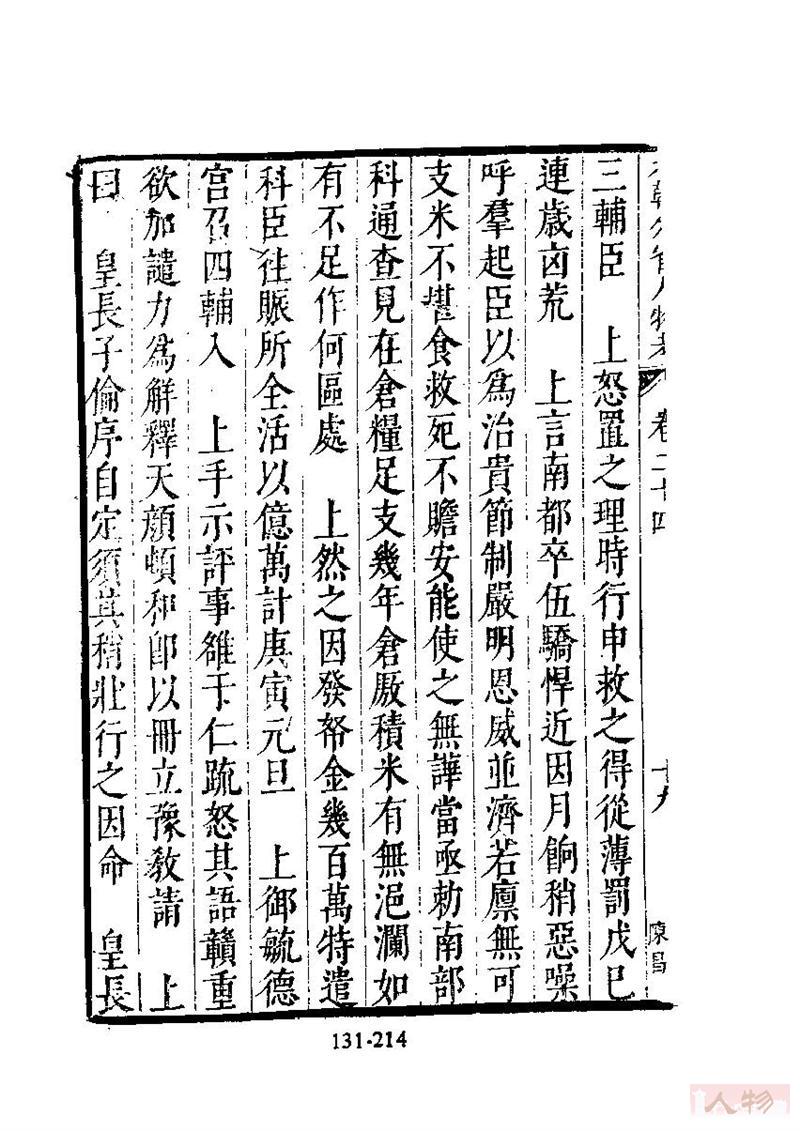 本朝分省人物考 卷二十四 十九 陳昌
三輔臣 上怒置之理時行申救之得從薄罰戊巳
連歲凶荒 上言南都卒伍驕悍近因月餉稍惡噪
呼羣起臣以爲治貴節制嚴明恩威並濟若廪無可
支米不堪食救死不贍安能使之無譁當亟勅南部
科通查見在倉糧足支幾年倉厫積米有無浥瀾如
有不足作何區處 上然之因發帑金幾百萬特遣
科臣徃賑所全活以億萬計庚寅元旦 上御毓德
宮召四輔入 上手示評事雒于仁疏怒其語贛重
欲加譴力爲解釋天顏頓和卽以冊立豫敎請 上
曰 皇長子倫序自定須其稍壯行之因命 皇長
131-214
人物